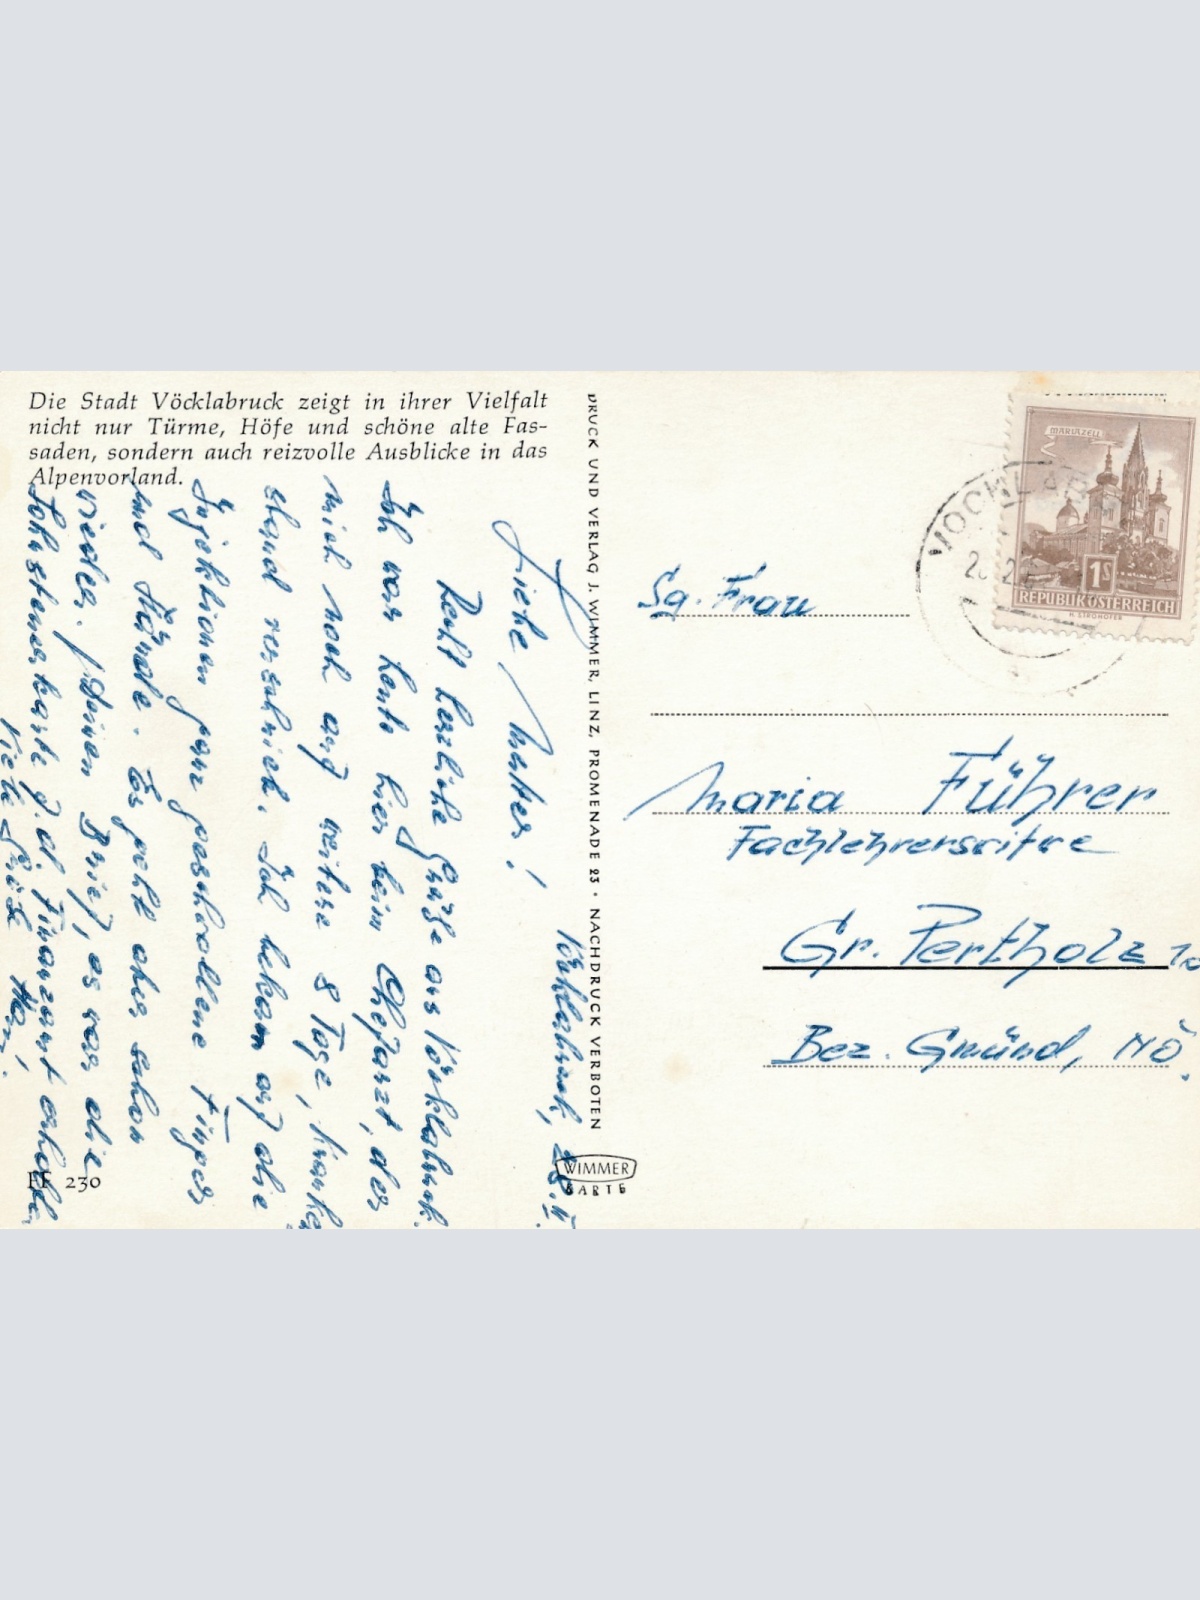 Die Stadt Vöcklabruck zeigt in ihrer Vielfalt
nicht nur Türme, Höfe und schöne alte Fas-
saden, sondern auch reizvolle Ausblicke in das
Alpenvorland.
Vöcklabruck, 28.II.
Liebe Mutter!
Recht herzliche Grüße aus Vöcklabruck.
Ich war heute hier beim Chefarzt, der
mich noch auf weitere 8 Tage, Kranken
stand verschrieb. Ich bekam auf die
Injektionen ganz geschwollene Finger
und Hände. Es geht aber schon
wieder. Deinen Brief, es war die
Lohnsteuerkarte f. d. Finanzamt
Viele Grüße
FF 230
DRUCK UND VERLAG J. WIMMER, LINZ, PROMENADE 23 · NACHDRUCK VERBOTEN
WIMMER
KARTE
MARIAZELL
1S
REPUBLIK ÖSTERREICH
H. STROHOFER
VÖCKLAB
Sg. Frau
Maria Führer
Gr. Pertholz
Bez. Gmünd, NÖ.